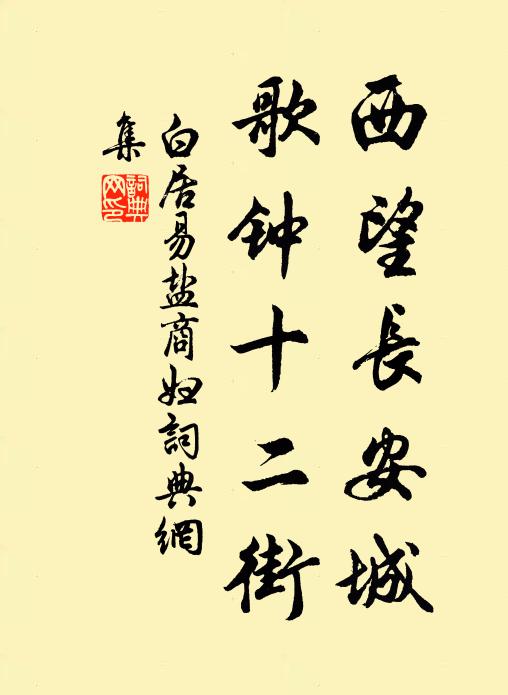 西望長安城
歌钟十二街
白居易盐商妇詞典網
集
詞典網印